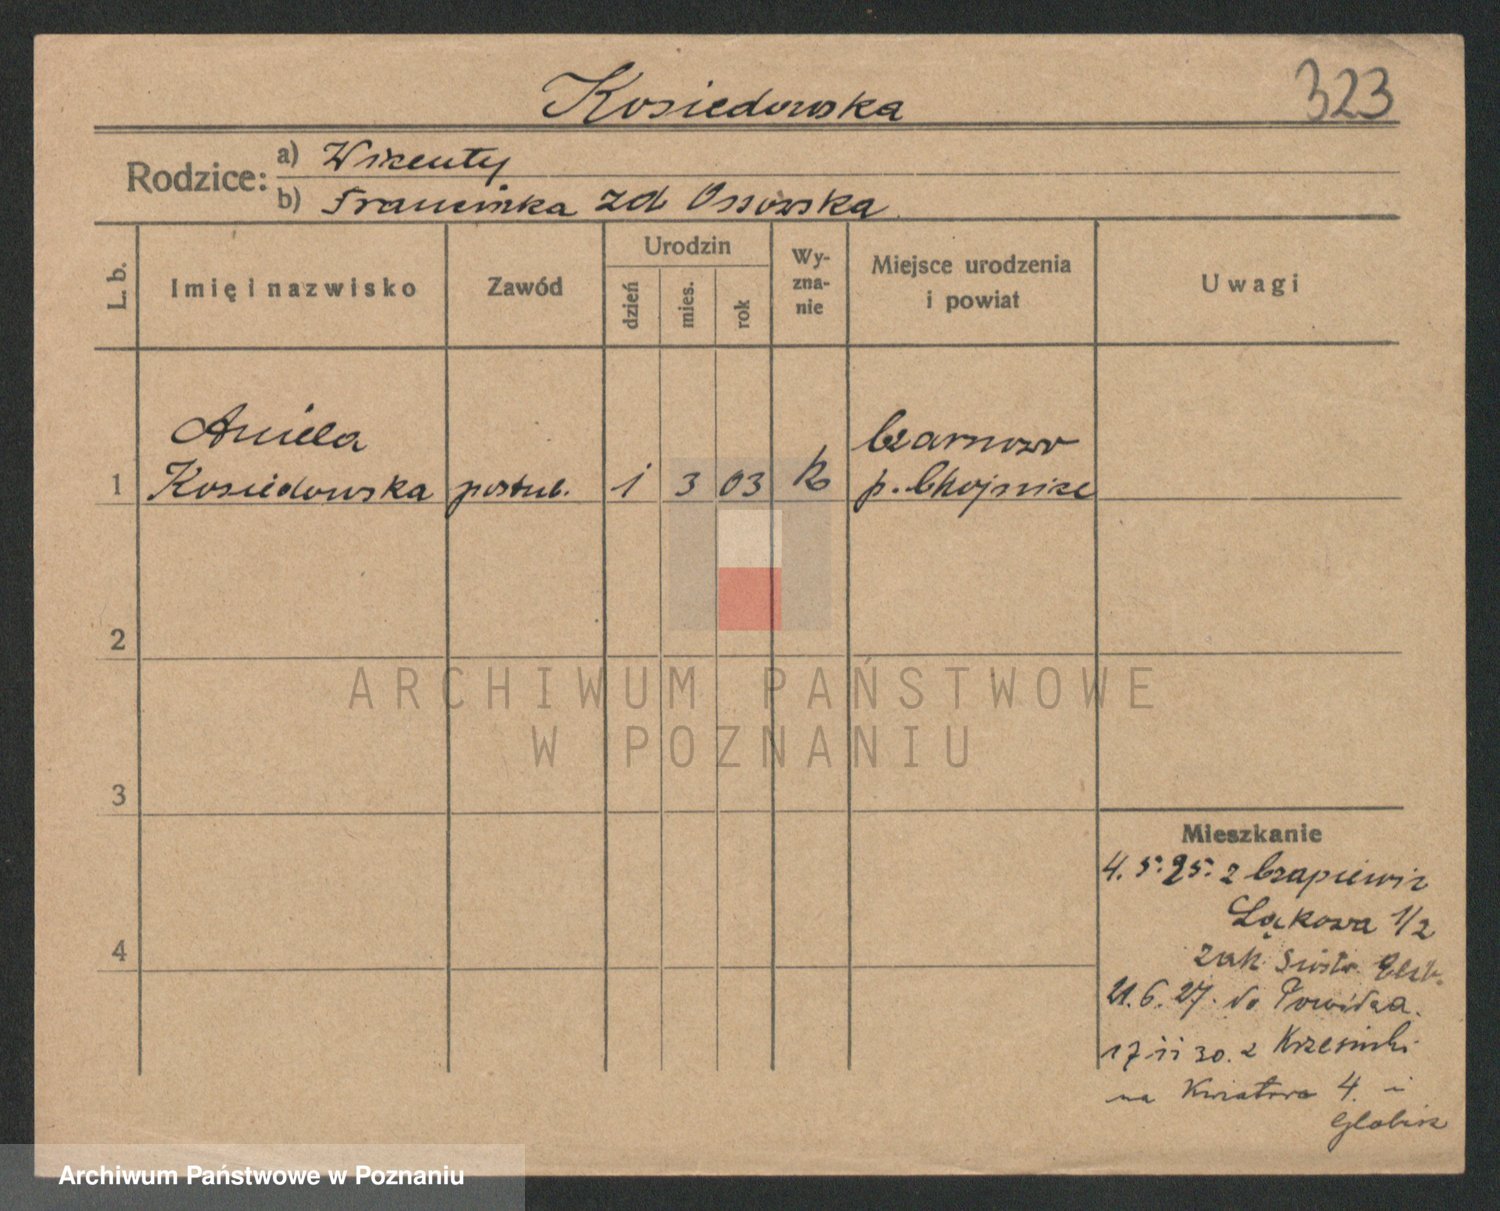 Kosiedowska
323
Rodzice:
a) Wicenty
b) Franciszka zd Ossowska
L. b.
Imię i nazwisko
Zawód
Urodzin
dzień
mies.
rok
Wy-
zna-
nie
Miejsce urodzenia
i powiat
Uwagi
Aniela
Czarnowo
1 Kosiedowska postul. 1 3 03 K p. Chojnice
2
3
4
ARCHIWUM PAŃSTWOWE
W POZNANIU
Mieszkanie
4. 5. 25. z Czapiewic
Łąkowa 1/2
zak Siostr Elżb.
21. 6. 27. do Powidza.
17 11 30. z Krzesinki
na 4. i
Archiwum Państwowe w Poznaniu